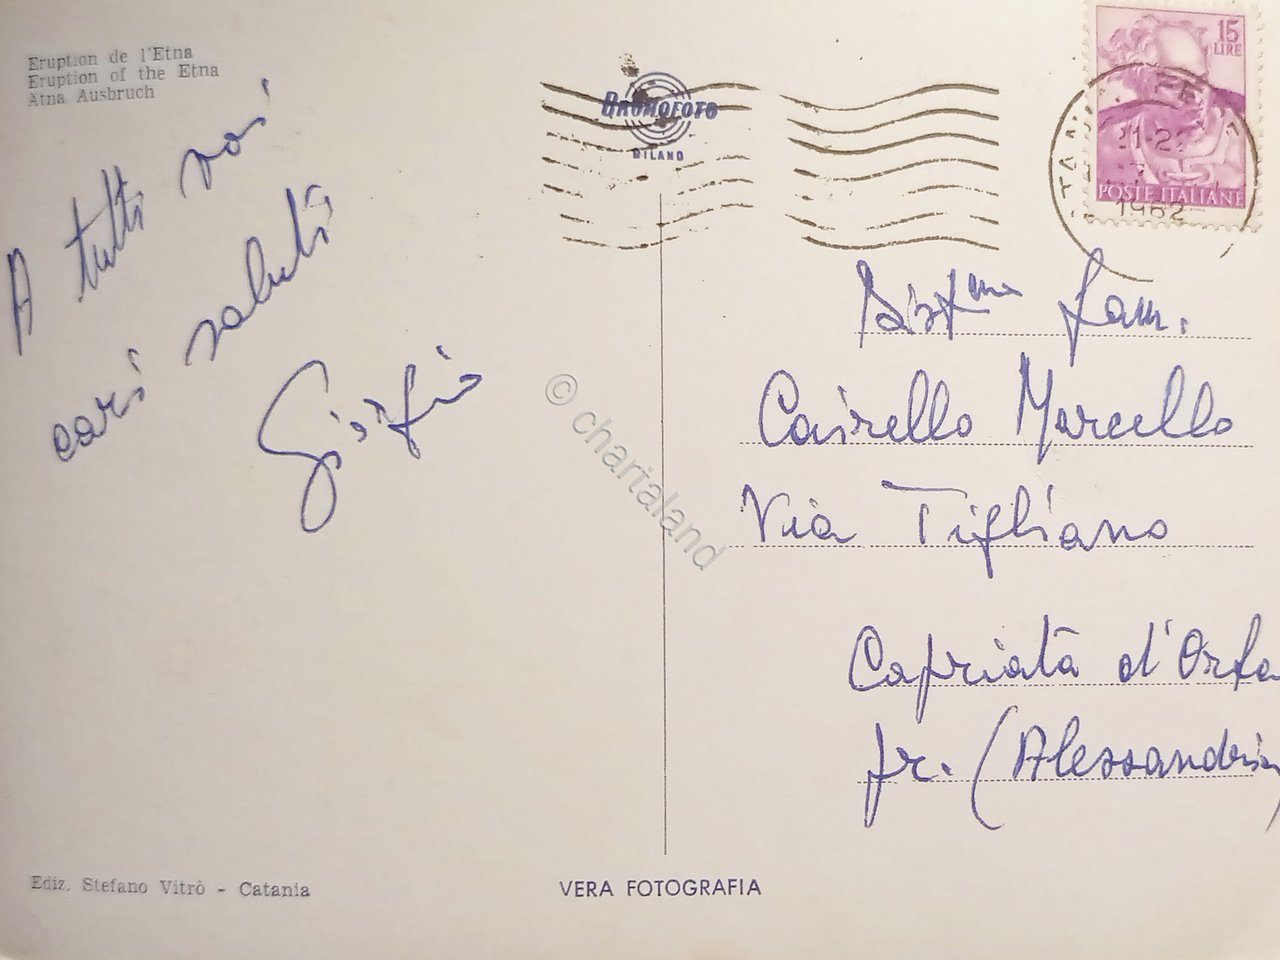 Eruption de l'Etna
Eruption of the Etna
Ätna Ausbruch
A tutti voi
cari saluti
BROMOFOTO
MILANO
15
LIRE
POSTE ITALIANE
1962
Dist^ma Fam.
Cairello Marcello
Via Tigliano
Capriata d'Orba
pr. (Alessandria
© chartaland
Ediz. Stefano Vitrò - Catania
VERA FOTOGRAFIA